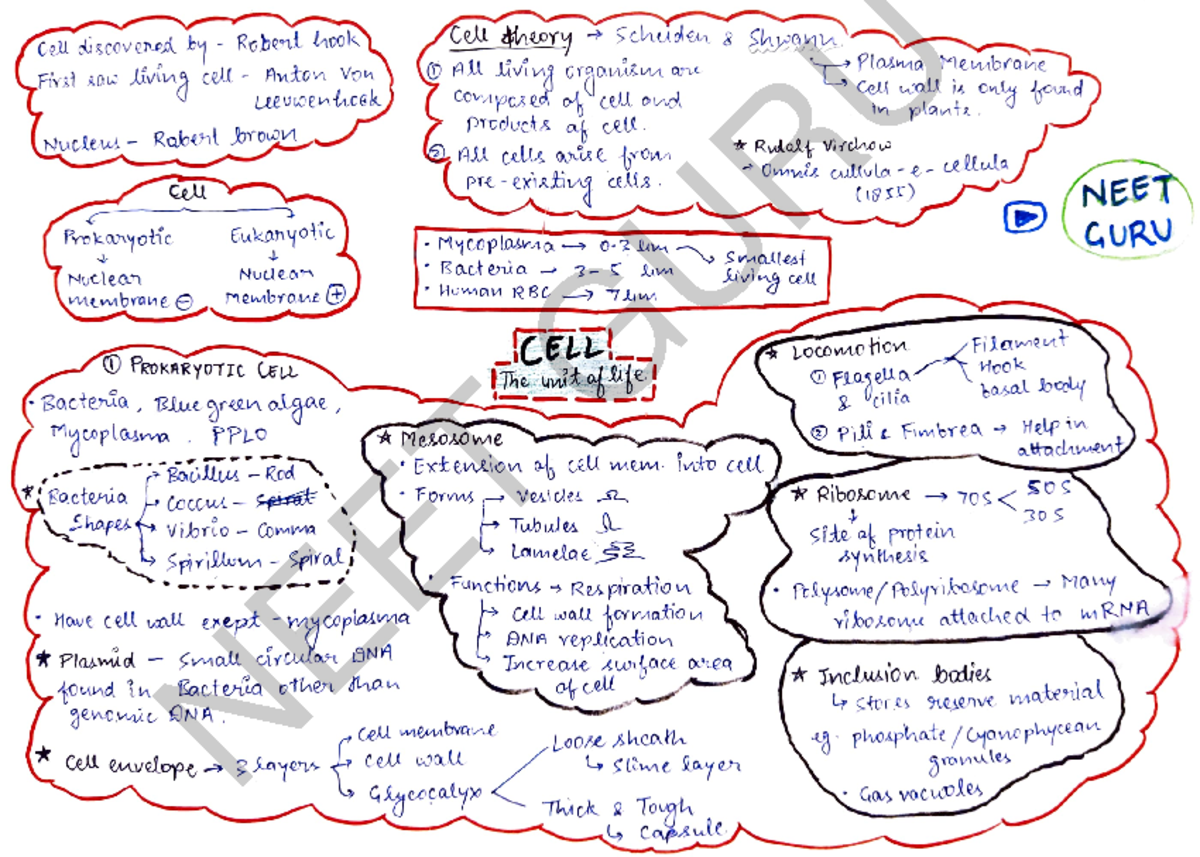 Cell discovered by - Robert hook
First saw living cell - Anton Von
Leeuwenhoek
Nucleus - Robert brown
Cell theory → Scheiden & Shwann.
① All living organism are
composed of cell and
products of cell.
② All cells arise from
pre-existing cells.
→ Plasma Membrane
→ Cell wall is only found
in plants.
★ Rudolf Virchow
→ Omnis cullula-e-cellula
(1855)
NEET
GURU
Cell
Prokaryotic
↓
Nuclear
membrane ⊖
Eukaryotic
↓
Nuclear
Membrane ⊕
• Mycoplasma → 0.3 um → Smallest
living cell
• Bacteria → 3-5 um
• Human RBC → 7 um
CELL
The unit of life.
① PROKARYOTIC CELL
• Bacteria, Blue green algae,
Mycoplasma. PPLO
★ Bacteria
Shapes
→ Bacillus - Rod
→ Coccus - Spiral
→ Vibrio - Comma
→ Spirillum - Spiral
• Have cell wall exept - mycoplasma
★ Plasmid - Small circular DNA
found in Bacteria other than
genomic DNA.
★ Cell envelope → 3 layers
→ Cell membrane
→ Cell wall
→ Glycocalyx
Loose sheath
↳ Slime layer
Thick & Tough
↳ Capsule.
★ Mesosome
• Extension of cell mem. into cell
• Forms → Vesicles
→ Tubules
→ Lamelae
• Functions → Respiration
→ Cell wall formation
→ DNA replication
→ Increase surface area
of cell
★ Locomotion
① Flagella
& cilia
Filament
Hook
basal body
② Pili & Fimbrea → Help in
attachment
★ Ribosome → 70S < 50S
30S
↓
Site of protein
synthesis
• Polysome/Polyribosome → Many
ribosome attached to mRNA
★ Inclusion bodies
↳ Stores reserve material
eg. phosphate/Cyanophycean
granules
• Gas vacuoles
NEET GURU